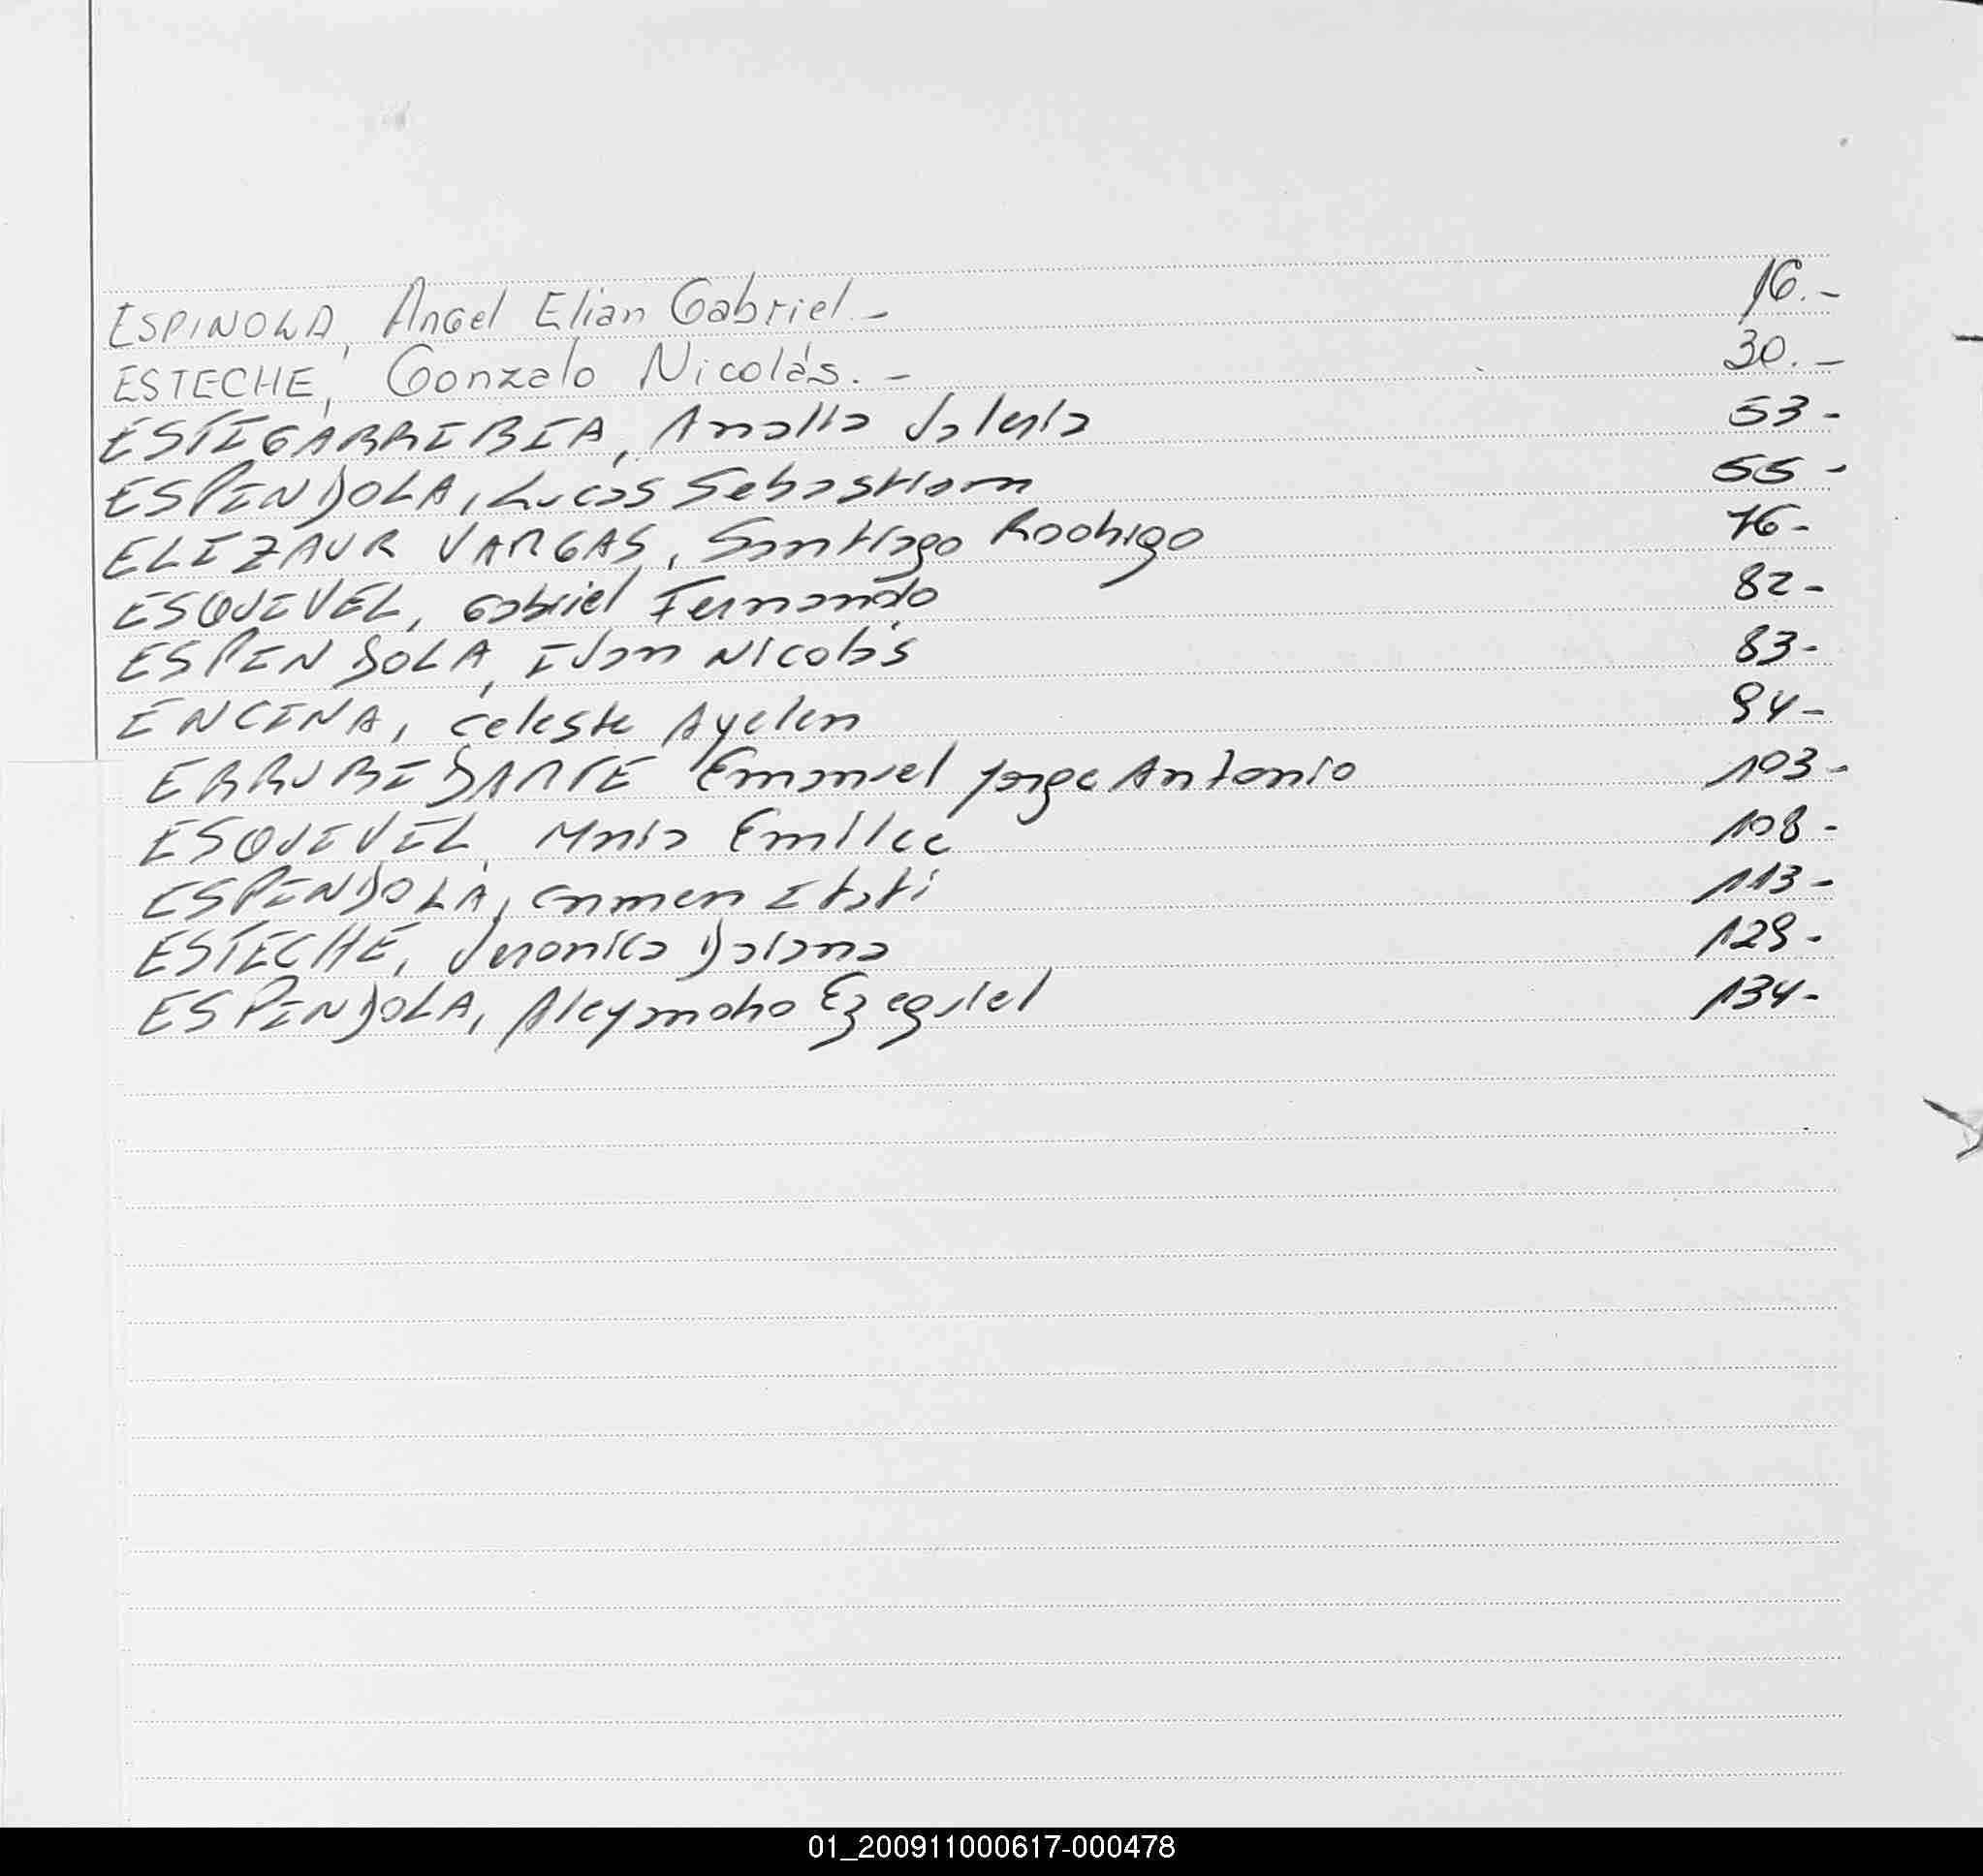 ESPINOLA, Angel Elian Gabriel.- 16.-
ESTECHE, Gonzalo Nicolás.- 30.-
ESTIGARRIBIA, Analia Valeria 53-
ESPINDOLA, Lucas Sebastian 55-
ELIZAUR VARGAS, Santiago Rodrigo 76-
ESQUIVEL, Gabriel Fernando 82-
ESPINDOLA, Ivan Nicolás 83-
ENCINA, Celeste Ayelen 94-
ERRUBIDARTE Emanuel Jorge Antonio 103-
ESQUIVEL, Maria Emilce 108-
ESPINDOLA, Carmen Itati 113-
ESTECHE, Veronica Daiana 129-
ESPINDOLA, Alejandro Ezequiel 134-
01_200911000617-000478